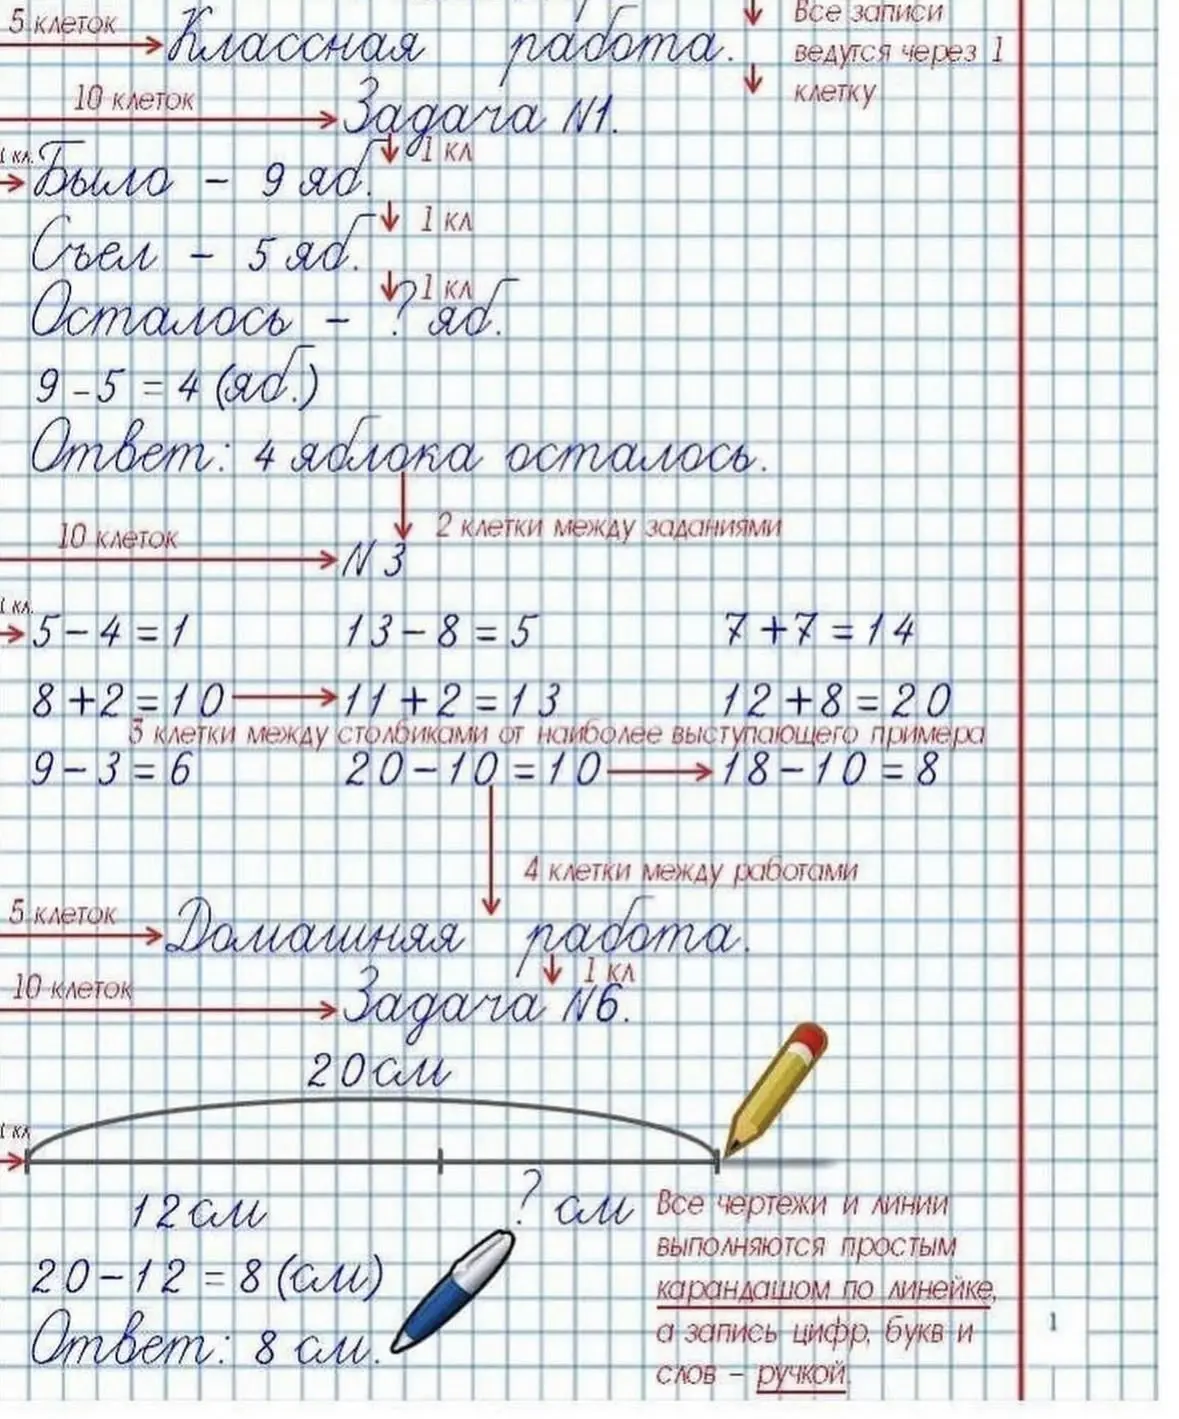 5 клеток
Классная работа.
Все записи
ведутся через 1
клетку
10 клеток
Задача №1.
1 кл.
1 кл
Было – 9 яб.
1 кл
Съел – 5 яб.
1 кл
Осталось – ? яб.
9 – 5 = 4 (яб.)
Ответ: 4 яблока осталось.
2 клетки между заданиями
10 клеток
№ 3
1 кл.
5 – 4 = 1 13 – 8 = 5 7 + 7 = 14
8 + 2 = 10 11 + 2 = 13 12 + 8 = 20
3 клетки между столбиками от наиболее выступающего примера
9 – 3 = 6 20 – 10 = 10 18 – 10 = 8
4 клетки между работами
5 клеток
Домашняя работа.
1 кл
10 клеток
Задача №6.
20 см
1 кл
12 см ? см
20 – 12 = 8 (см)
Ответ: 8 см.
Все чертежи и линии
выполняются простым
карандашом по линейке,
а запись цифр, букв и
слов – ручкой.
1